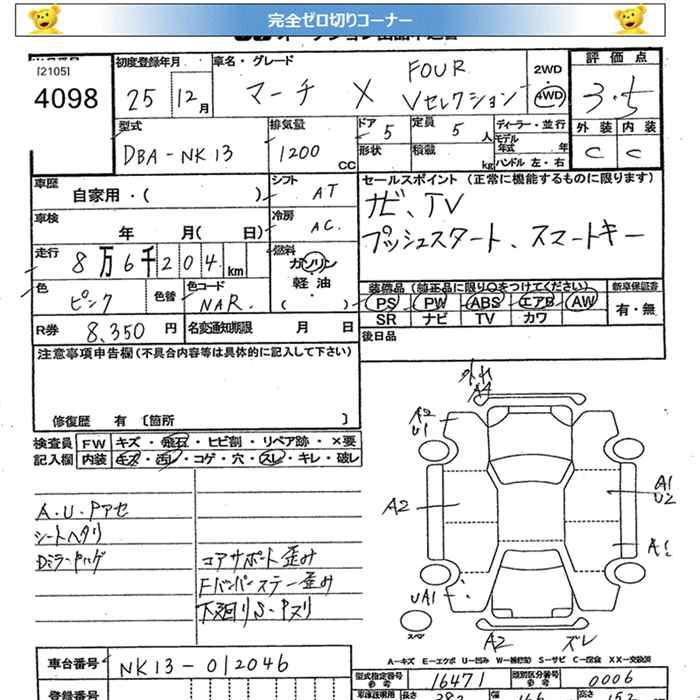 完全ゼロ切りコーナー
[2105]
4098
初度登録年月
25 12月
車名・グレード
マーチ X FOUR Vセレクション
2WD
4WD
評価点
3.5
外装 内装
C C
型式
DBA-NK13
排気量
1200 CC
ドア 5
形状
定員 5 人
積載 kg
ディーラー・並行
モデル年式 年
ハンドル 左・右
車歴
自家用・( )
シフト
AT
車検
年 月( 日)
冷房
AC.
走行
8万6千204km
燃料
ガソリン
軽油・
( )
色
ピンク
色替
色コード
NAR.
R券 8,350 円
名変通知期限 月 日
セールスポイント (正常に機能するものに限ります)
ナビ、TV
プッシュスタート、スマートキー
装備品(純正品に限り○をつけてください)
PS PW ABS エアB AW
SR ナビ TV カワ
新車保証書
有・無
後日品
注意事項申告欄(不具合内容等は具体的に記入して下さい)
修復歴 有 〔箇所 〕
検査員記入欄
FW キズ・飛石・ヒビ割・リペア跡・×要
内装 キズ・汚レ・コゲ・穴・スレ・キレ・破レ
A.U.Pアセ
シートヘタリ
コアサポート歪み
Fバンパーステー歪み
下廻りS・Pスリ
外れ
A4
A2
U1
A2
A1
U2
A1
UA1
スペア
A2 ズレ
A-キズ E-エクボ U-凹み W-補修跡 S-サビ C-腐食 XX-交換済
車台番号 NK13-012046
型式指定番号 参考 16471
類別区分番号 参考 0006
登録番号
長さ 382
幅 166
高さ 152